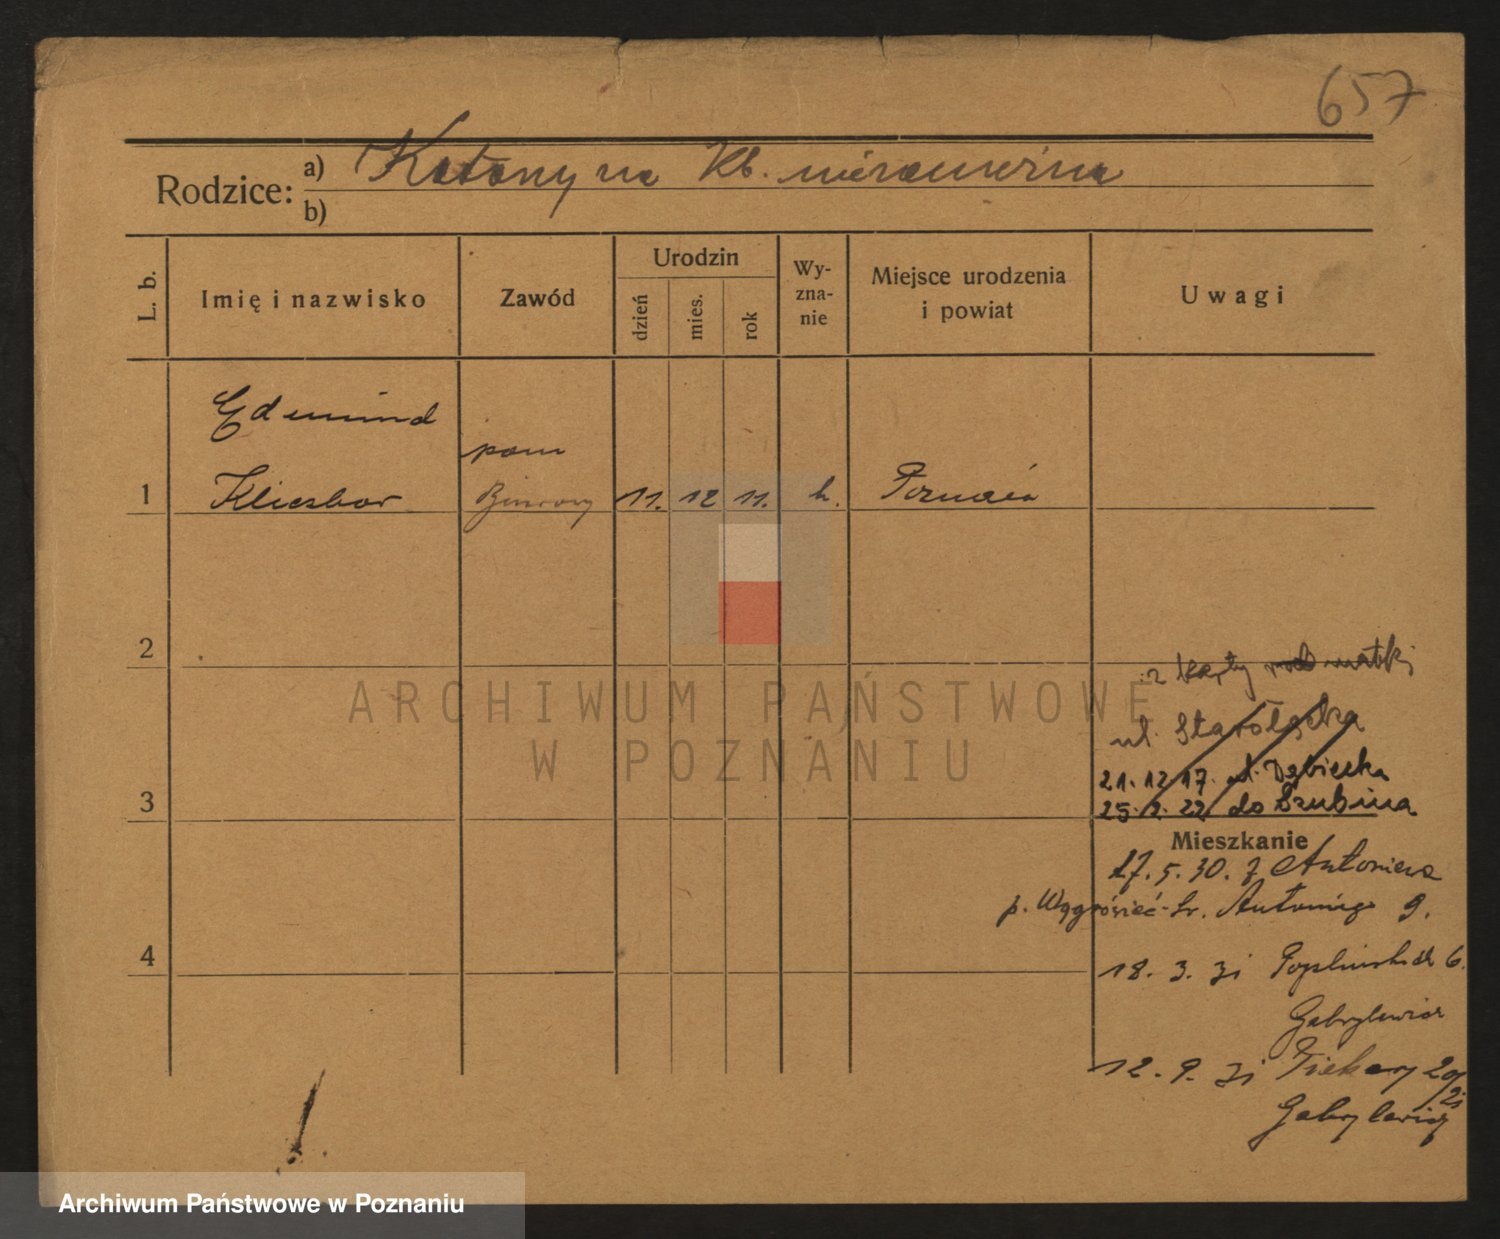 657
Rodzice:
a) Katarzyna Kl. niezamężna
b)
L. b.
Imię i nazwisko
Zawód
Urodzin
dzień
mies.
rok
Wy-
zna-
nie
Miejsce urodzenia
i powiat
Uwagi
Edmund
pom
1 Klieszbor Biurowy 11. 12 11. k. Poznań
2
z karty matki
ul. Starołęcka
21. 12 17. ul. Dębiecka
3
25. 2. 22 do Szubina
Mieszkanie
17. 5. 30. z Antoniewa
p. Wągrówieć św. Antoniego 9.
4
18. 3. 31 Poplińskich 6.
Gabrylewicz
12. 9. 31 Piekary 20/21
Gabrylewicz
ARCHIWUM PAŃSTWOWE
W POZNANIU
Archiwum Państwowe w Poznaniu